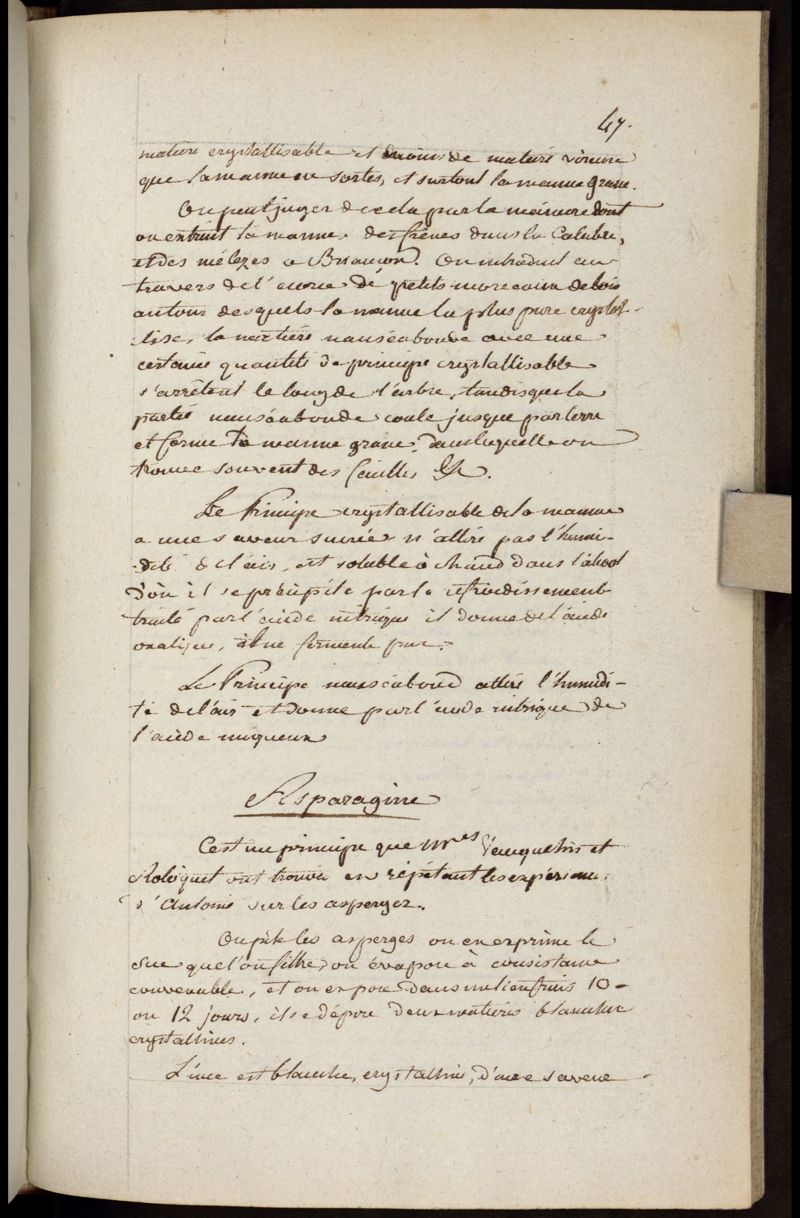 47.
matiere crystallisable et moins de matiere vireuse
que la manne en sortes, et surtout la manne grasse.
On peut juger de cela par la maniere dont
on extrait la manne des frênes dans la Calabre,
et des mélezes a Briançon. On introduit au
travers de l'écorce de petits morceaux de bois
autour desquels la manne la plus pure crystal-
lise, la matiere nauséabonde avec une
certaine quantité de principe crystallisable
s'arrêtent le long de l'arbre, tandis que la
partie nauséabonde coule jusque par terre
et forme la manne grasse, dans laquelle on
trouve souvent des feuilles &c.
Le Principe crystallisable de la manne
a une saveur sucrée n'attire pas l'humi-
dité de l'air, est soluble à chaud dans l'alcool
d'où il se précipite par le refroidissement
traité par l'acide nitrique il donne de l'acide
oxalique, il ne fermente pas.
Le Principe nauséabond attire l'humidi-
té de l'air et donne par l'acide nitrique de
l'acide muqueux
Asparagine
C'est un principe que Mres Vauquelin et
Robiquet ont trouvé en répétant les expérience
d'Antoine sur les asperges.
On pile les asperges on en exprime le
suc que l'on filtre, on évapore à consistance
convenable, et on expose dans un lieu frais 10
ou 12 jours, il se dépose deux matieres blanches
crystallines.
L'une est blanche, crystalline, d'une saveur